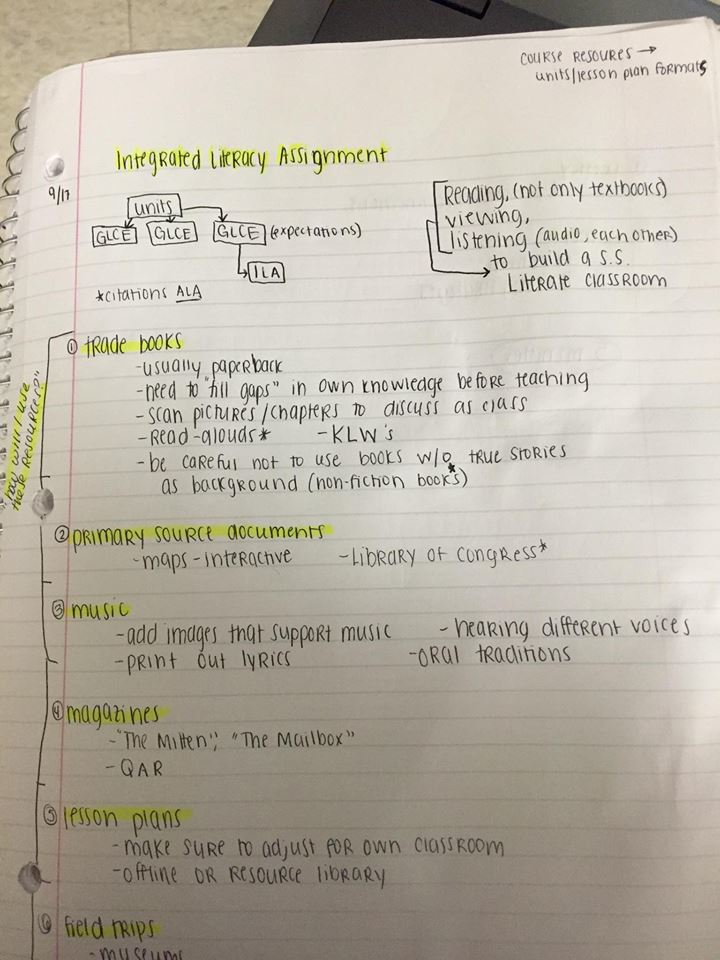 COURSE RESOURES →
units/lesson plan FORMATS
Integrated Literacy Assignment
9/17
units
GLCE GLCE GLCE (expectations)
ILA
*citations ALA
Reading, (not only textbooks)
viewing,
listening (audio, each other)
to build a S.S.
Literate classroom
① trade books
-usually paperback
-need to "fill gaps" in own knowledge before teaching
-scan pictures/chapters to discuss as class
-Read-alouds* -KLW's
-be careful not to use books w/o true stories
as background (non-fiction books*)
"how will I use
these resources?"
② primary source documents
-maps-interactive -Library of Congress*
③ music
-add images that support music -hearing different voices
-print out lyrics -oral traditions
④ magazines
-"The Mitten", "The Mailbox"
-QAR
⑤ lesson plans
-make sure to adjust for own classroom
-offline or resource library
⑥ field trips
-museums